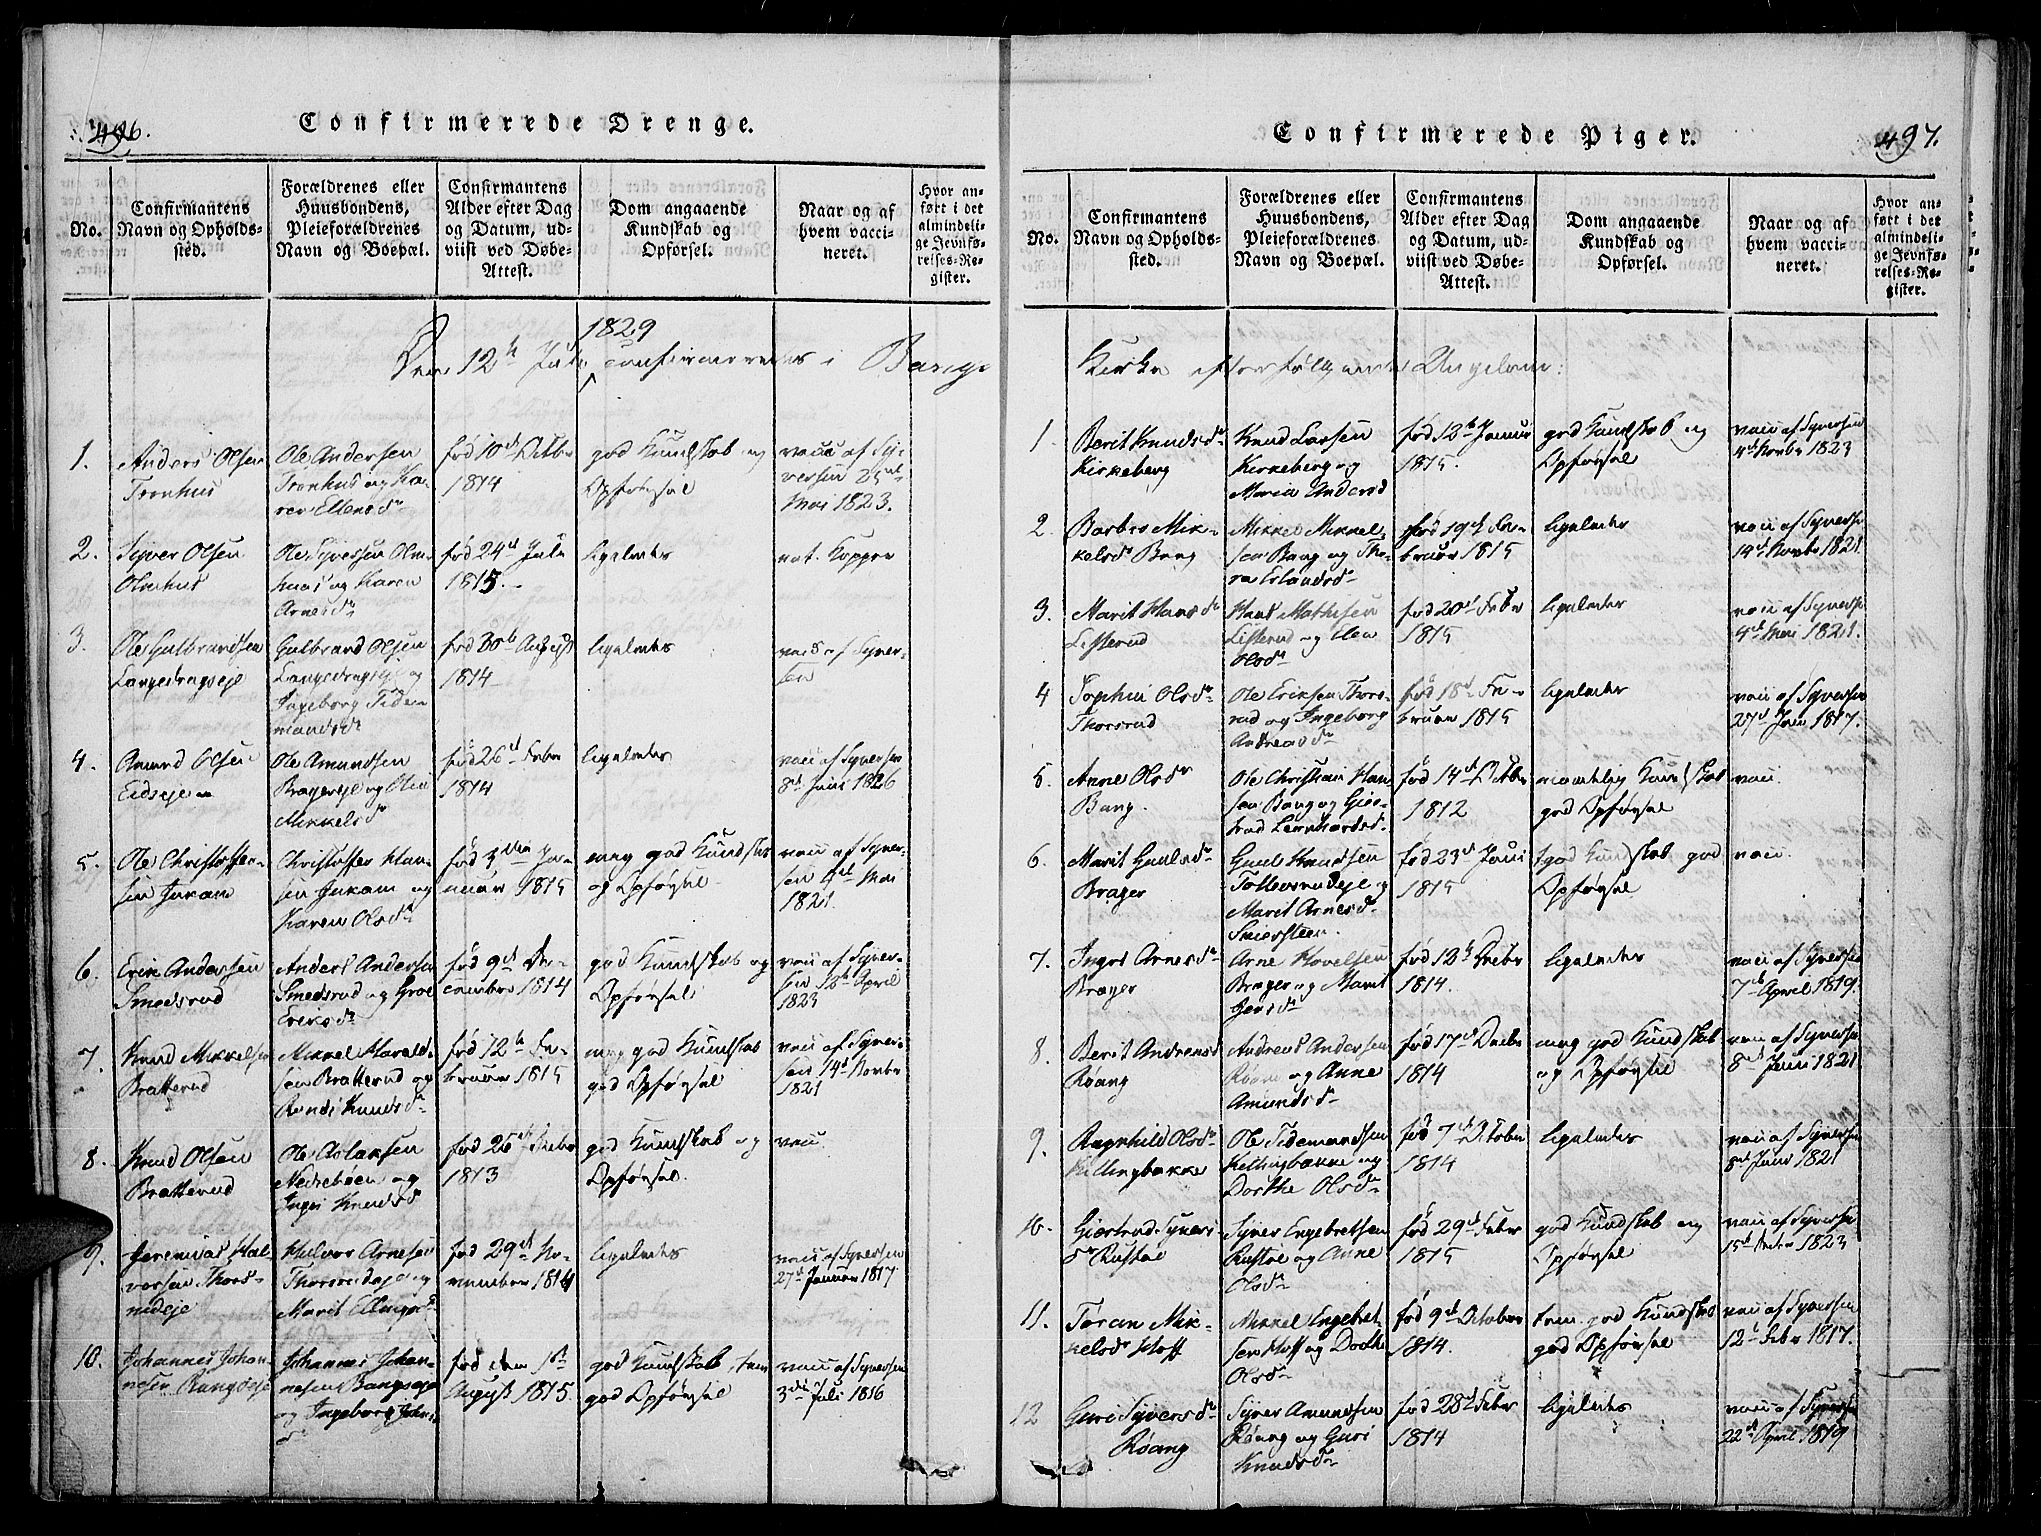 496.
Confirmerede Drenge.
No.
Confirmantens
Navn og Opholds-
sted.
Forældrenes eller
Huusbondens,
Pleieforældrenes
Navn og Boepæl.
Confirmantens
Alder efter Dag
og Datum, ud-
viist ved Døbe-
Attest.
Dom angaaende
Kundskab og
Opførsel.
Naar og af
hvem vacci-
neret.
Hvor an-
ført i det
almindeli-
ge Jevnfø-
relses-Re-
gister.
1829
Den 12te Juli confirmeredes i Bangs
1.
Anders Olsen
Tronhus
Ole Andersen
Tronhus og Ka-
ren Ellensdr
fød 10de Octbr
1814
god Kundskab og
Opførsel
vacc af Sy-
versen 25de
Mai 1823.
2.
Syver Olsen
Olmhus
Ole Syversen Olm-
huus og Karen
Arnesdr
fød 24de Juli
1815.
ligeledes
nat. Kopper
3.
Ole Gulbrandsen
Langedragseje
Gulbrand Olsen
Langedragseje og
Ingeborg Tide-
mandsdr
fød 30te August
1814
ligeledes
vacc af Syver-
sen
4.
Amund Olsen
Eidseje
Ole Amundsen
Bragereje og
Mikkelsdr
fød 26de Febr
1814
ligeledes
vacc af Syversen
8de Juni 1826
5.
Ole Christoffer-
sen Jukam
Christoffer Han-
sen Jukam og
Karen Olsdr
fød 3die Ja-
nuar 1815
meg god Kundskab
og Opførsel
vacc af Syver-
sen Mai
1821.
6.
Erik Andersen
Smedsrud
Anders Andersen
Smedsrud og Groe
Eriksdr
fød 9de De-
cember 1814
god Kundskab og
Opførsel
vacc af Syver-
sen 12te April
1823
7.
Knud Mikkelsen
Bratterud
Mikkel Harald-
sen Bratterud og
Randi Knudsdr
fød 12te Fe-
bruar 1815
meg god Kundskab
god Opførsel
vacc af Syver-
sen 14de Novbr
1821
8.
Knud Olsen
Bratterud
Ole Aslaksen
Nedrebøen og
Ingri Knudsd
fød 26de Decbr
1813
god Kundskab og
Opførsel.
vacc.
9.
Jeremias Hal-
vorsen Thors-
rudeje
Halvor Arnesen
Thorsrudeje og
Marit Ellingsdr
fød 29de No-
vember 1814
ligeledes
vacc af Syversen
27de Januar 1817
10.
Johannes Johan-
nesen Bangseje
Johannes Johan-
nesen Bangseje
og Ingeborg Johs
dr
fød den 1ste
August 1815.
god Kundskab, tem
god Opførsel
vacc af Syversen
3die Juli 1816
497.
Confirmerede Piger.
No.
Confirmantens
Navn og Opholds-
sted.
Forældrenes eller
Huusbondens,
Pleieforældrenes
Navn og Boepæl.
Confirmantens
Alder efter Dag
og Datum, ud-
viist ved Døbe-
Attest.
Dom angaaende
Kundskab og
Opførsel.
Naar og af
hvem vacci-
neret.
Hvor an-
ført i det
almindeli-
ge Jevnfø-
relses-Re-
gister.
Kirke efterfølgende Ungdom:
1.
Berit Knudsdr
Kirkeberg
Knud Larsen
Kirkeberg og
Maria Andersd
fød 12te Januar
1815.
god Kundskab og
Opførsel
vacc af Syversen
4de Novbr 1823
2.
Barbro Mik-
kelsdr Bang
Mikkel Mikkel-
sen Bang og Tho-
ra Erlandsdr
fød 19de Fe-
bruar 1815
ligeledes
vacc af Syversen
14de Novbr 1821.
3.
Marit Hansdr
Listerud
Hans Mathisen
Listerud og
Olsdr
fød 20de Febr
1815
ligeledes
vacc af Syversen
4de Mai 1821.
4
Sophie Olsdr
Thorsrud
Ole Eriksen Thors-
rud og Ingeborg
Andreasdr
fød 18de Fe-
bruar 1815
ligeledes
vacc af Syversen
27de Juni 1817.
5.
Anne Olsdr
Bang.
Ole Christian Han-
sen Bang og Gjer-
trud Lennhardsdr.
fød 14de Octbr
1812
maadelig Kundskab
god Opførsel
vacc
6.
Marit Guulsdr
Brager
Guul Knudsen
Tollevsrudeje og
Marit Arnesdr
Smersteen.
fød 23de Juni
1815
god Kundskab god
Opførsel
vacc.
7.
Ingri Arnesdr
Brager
Arne Hovelsen
Brager og Marit
Jensdr
fød 12te Octbr
1814.
ligeledes
vacc af Syversen
7de April 1819.
8.
Berit Andreasd
Røang
Andreas Andersen
Røang og Anne
Amundsdr
fød 17de Decbr
1814
meg god Kundskab
og Opførsel
vacc af Syversen
8de Juni 1821
9.
Ragnhild Olsdr
Kellingbakke
Ole Tidemandsen
Kellingbakke og
Dorthe Olsdr
fød 7de October
1814
ligeledes
vacc af Syversen
8de Juni 1821
10.
Giertrud Syvers
dr Rustøe
Syver Engebretsen
Rustøe og Anne
Olsdr
fød 29de
1815
god Kundskab og
Opførsel
vacc af Syversen
15de Octbr 1823
11.
Toran Mik-
kelsdr Hoff
Mikkel Engebret-
sen Hoff og Dorthe
Olsdr
fød 9de October
1814.
tem. god Kundskab
god Opførsel
vacc af Syversen
12te Febr 1817.
12
Guri Syversdr
Røang
Syver Amundsen
Røang og Guri
Knudsdr
fød 28de Febr
1814
ligeledes
vacc af Syversen
22de April 1819